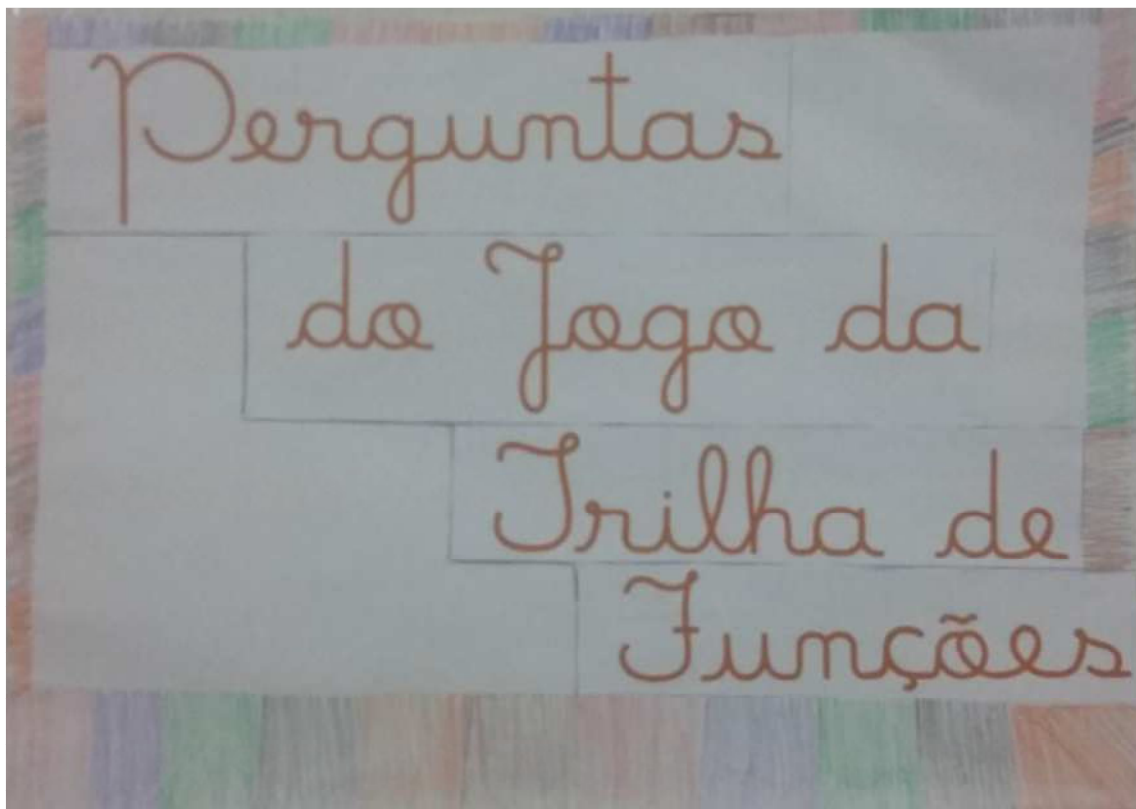 Perguntas
do Jogo da
Trilha de
Funções